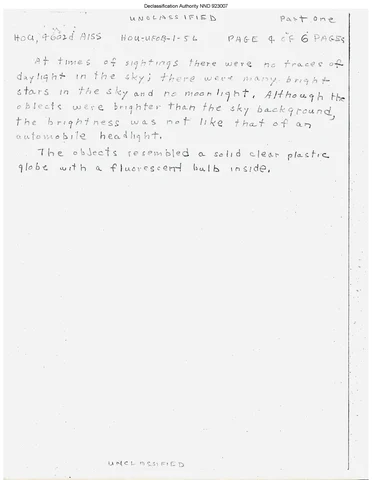 Declassification Authority NND 923007
UNCLASSIFIED Part One
HOU, 4602d AISS HOU-UFOB-1-54 PAGE 4 OF 6 PAGES
At times of sightings there were no traces of
daylight in the sky; there were many bright
stars in the sky and no moonlight. Although the
objects were brighter than the sky background,
the brightness was not like that of an
automobile headlight.
The objects resembled a solid clear plastic
globe with a fluorescent bulb inside.
UNCLASSIFIED